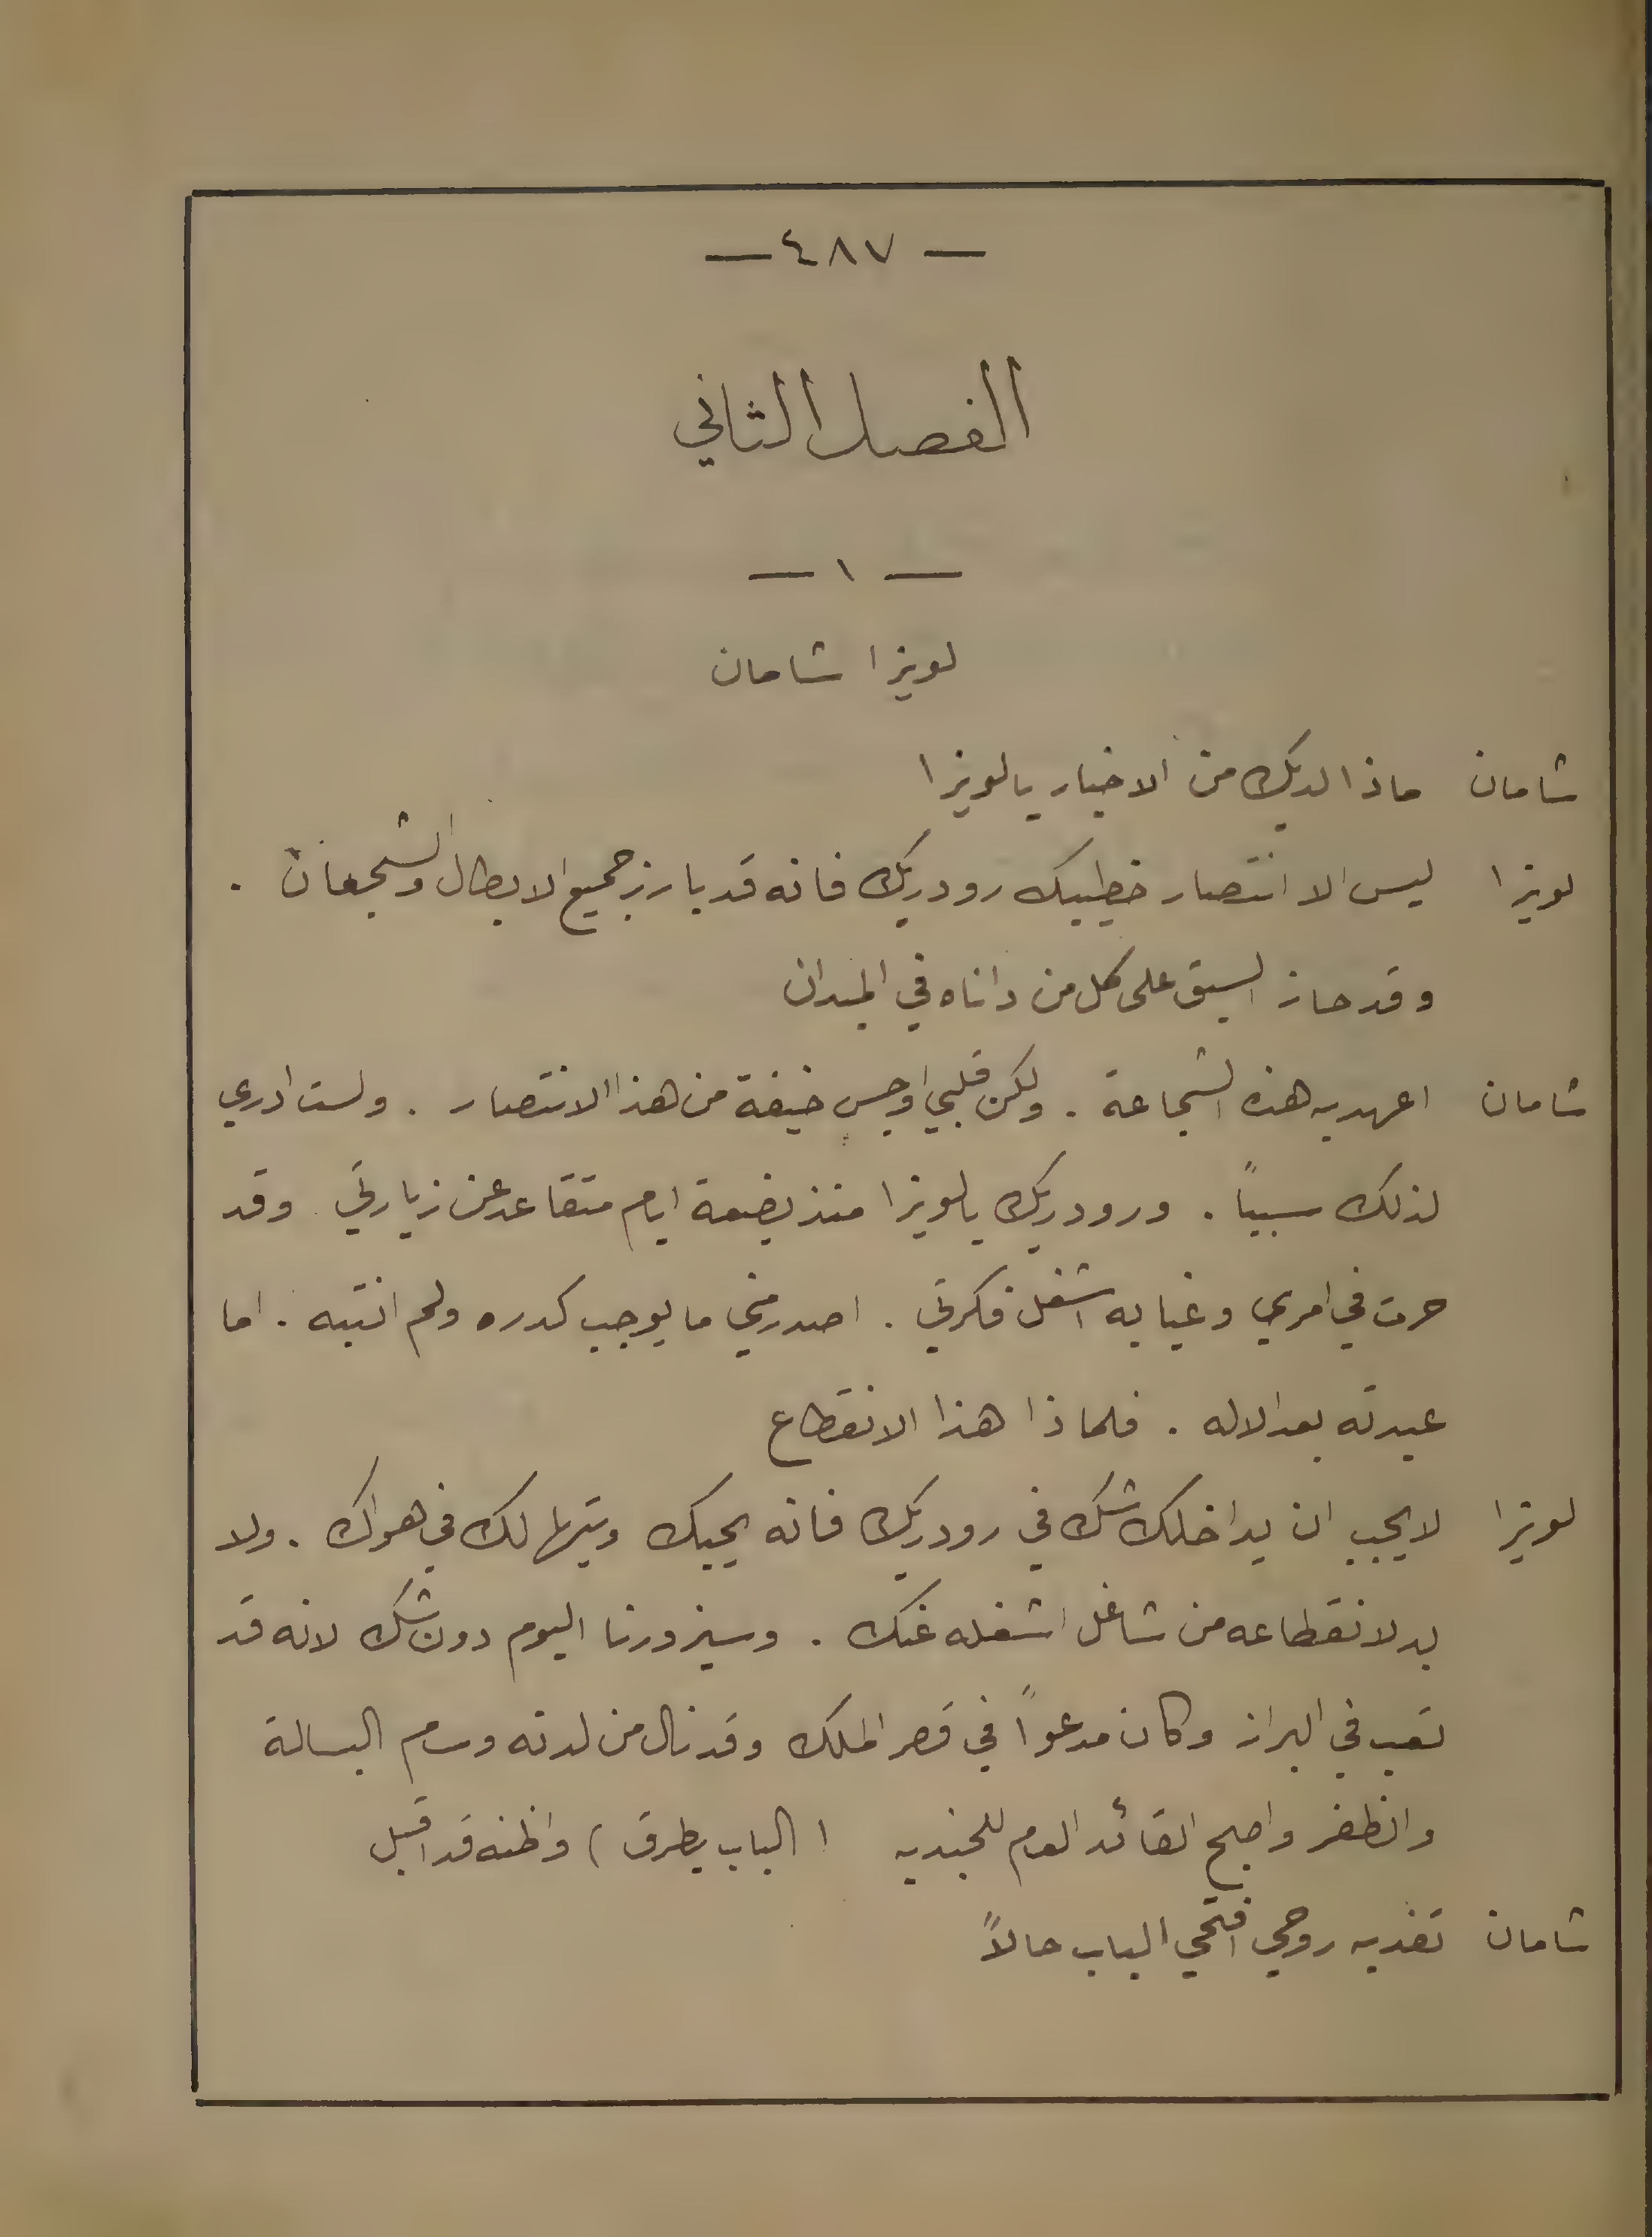 — ٤٨٧ —
الفصل الثاني
— ١ —
لويزا شامان
شامان ماذا لديك من الاخبار يا لويزا
لويزا ليس الا انتصار خطيبك رودريك فانه قد بارز جميع الابطال والشجعان .
وقد حاز السبق على كل من داناه في الميدان
شامان اعهد به هذه الشجاعة . ولكن قلبي اوجس خيفة من هذا الانتصار . ولست ادري
لذلك سبباً . ورودريك يا لويزا منذ بضعة ايام متقاعد عن زيارتي وقد
حرت في امري وغيابه اشغل فكرتي . اصدر مني ما يوجب كدره ولم انتبه . اما
عبدته بعد الاله . فلماذا هذا الانقطاع
لويزا لا يجب ان يداخلك شك في رودريك فانه يحبك ويتهالك في هواك . ولا
بد لانقطاعه من شاغل اشغله عنك . وسيزورنا اليوم دون شك لانه قد
تعب في البراز وكان مدعواً في قصر الملك وقد نال من لدنه وسام البسالة
والظفر واصبح القائد العام للجنديه ( الباب يطرق ) واظنه قد اقبل
شامان تفديه روحي افتحي الباب حالاً